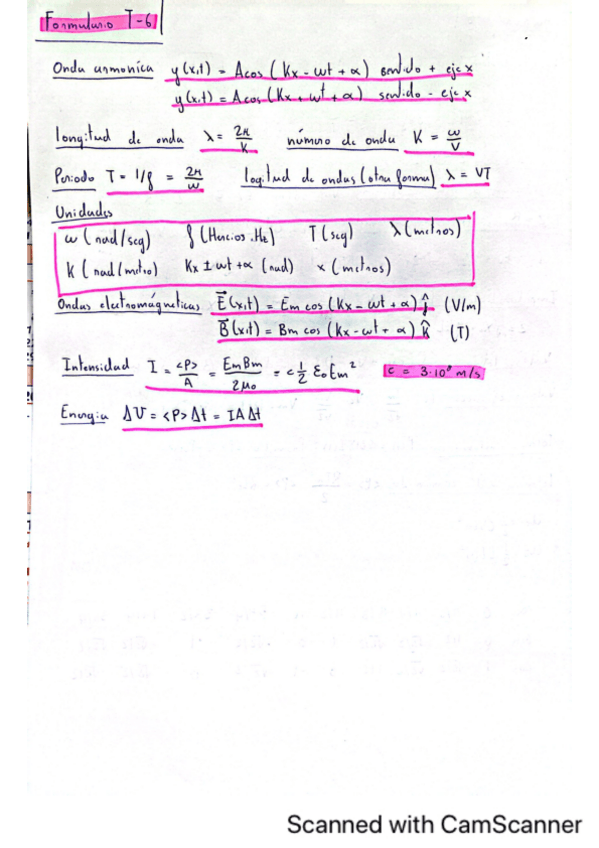 Formulario T-6
Onda armonica y(x,t) = Acos (Kx - ωt + α) sentido + eje x
y(x,t) = Acos (Kx + ωt + α) sentido - eje x
longitud de onda λ = 2π/K número de onda K = ω/V
Periodo T = 1/f = 2π/ω logitud de ondas (otra forma) λ = VT
Unidades
ω (rad/seg) f (Hercios. Hz) T (seg) λ (metros)
K (rad/metro) Kx ± ωt + α (rad) x (metros)
Ondas electromágneticas E⃗ (x,t) = Em cos (Kx - ωt + α) ĵ (V/m)
B⃗ (x,t) = Bm cos (Kx - ωt + α) k̂ (T)
Intensidad I = <P>/A = EmBm/2μ₀ = c 1/2 ε₀ Em² c = 3·10⁸ m/s
Energia ΔU = <P> Δt = IAΔt
Scanned with CamScanner